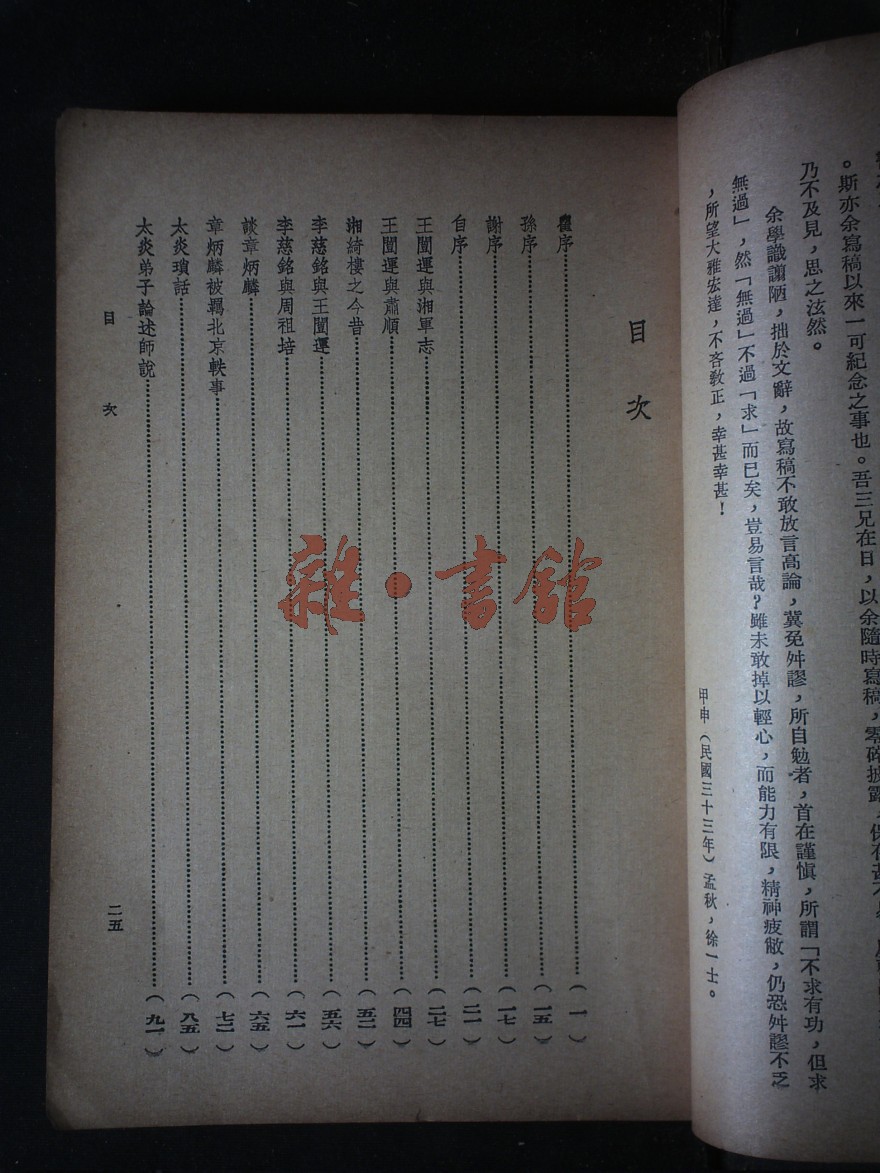 。斯亦余寫稿以來一可紀念之事也。吾三兄在日，以余隨時寫稿，零碎披露，保存甚不易，
乃不及見，思之泫然。
余學識譾陋，拙於文辭，故寫稿不敢放言高論，冀免舛謬，所自勉者，首在謹愼，所謂「不求有功，但求
無過」，然「無過」不過「求」而已矣，豈易言哉？雖未敢掉以輕心，而能力有限，精神疲敝，仍恐舛謬不乏
，所望大雅宏達，不吝敎正，幸甚幸甚！
甲申（民國三十三年）孟秋，徐一士。
目次
瞿序（一）
孫序（一五）
謝序（一七）
自序（二一）
王闓運與湘軍志（二七）
王闓運與肅順（四四）
湘綺樓之今昔（五二）
李慈銘與王闓運（五六）
李慈銘與周祖培（六一）
談章炳麟（六五）
章炳麟被羈北京軼事（七二）
太炎瑣話（八五）
太炎弟子論述師說（九一）
目次
二五
雜·書館